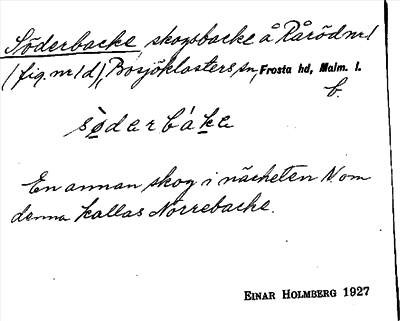 Söderbacke, skogsbacke å Råröd nr 1
(fig. nr 1 d), Bosjöklosters sn, Frosta hd, Malm. l.
f.
sö̀dɛrbákɛ
En annan skog i närheten N om
denna kallas Norrebacke.
EINAR HOLMBERG 1927